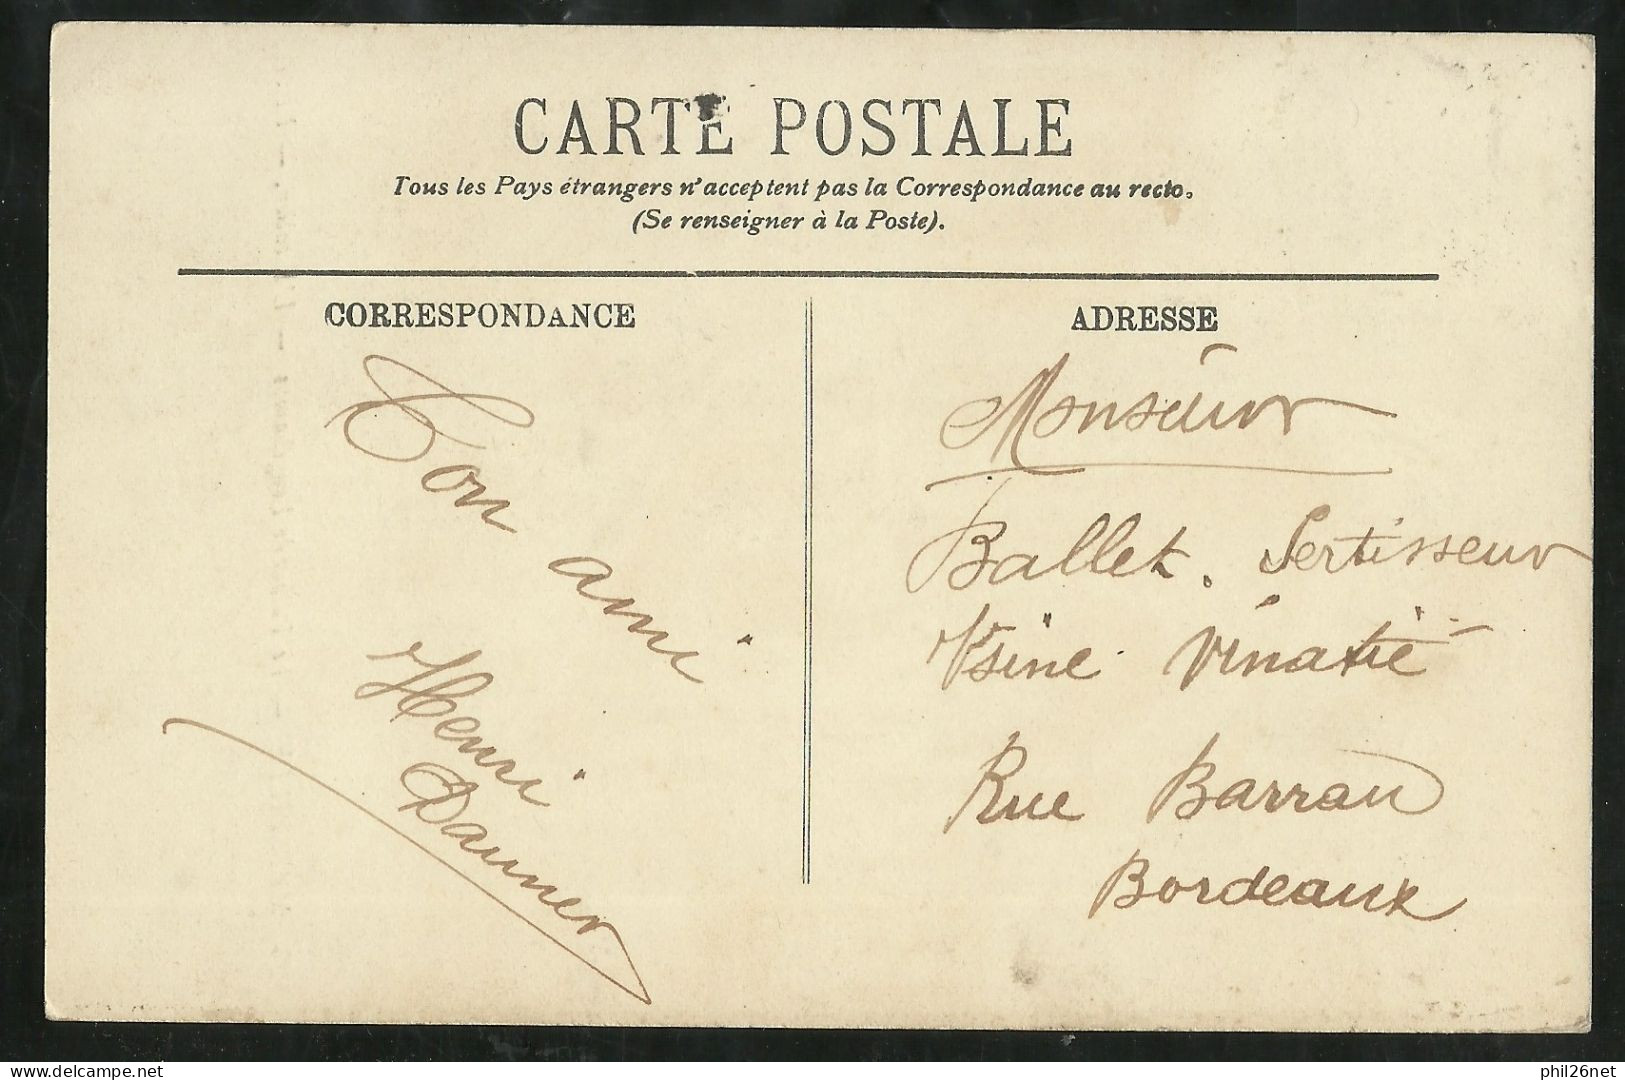 CARTE POSTALE
Tous les Pays étrangers n'acceptent pas la Correspondance au recto.
(Se renseigner à la Poste).
CORRESPONDANCE
Ton ami
Henri
Dauner
ADRESSE
Monsieur
Ballet. Sertisseur
Usine Vinatié
Rue Barrau
Bordeaux
delcampe.net
phil26net